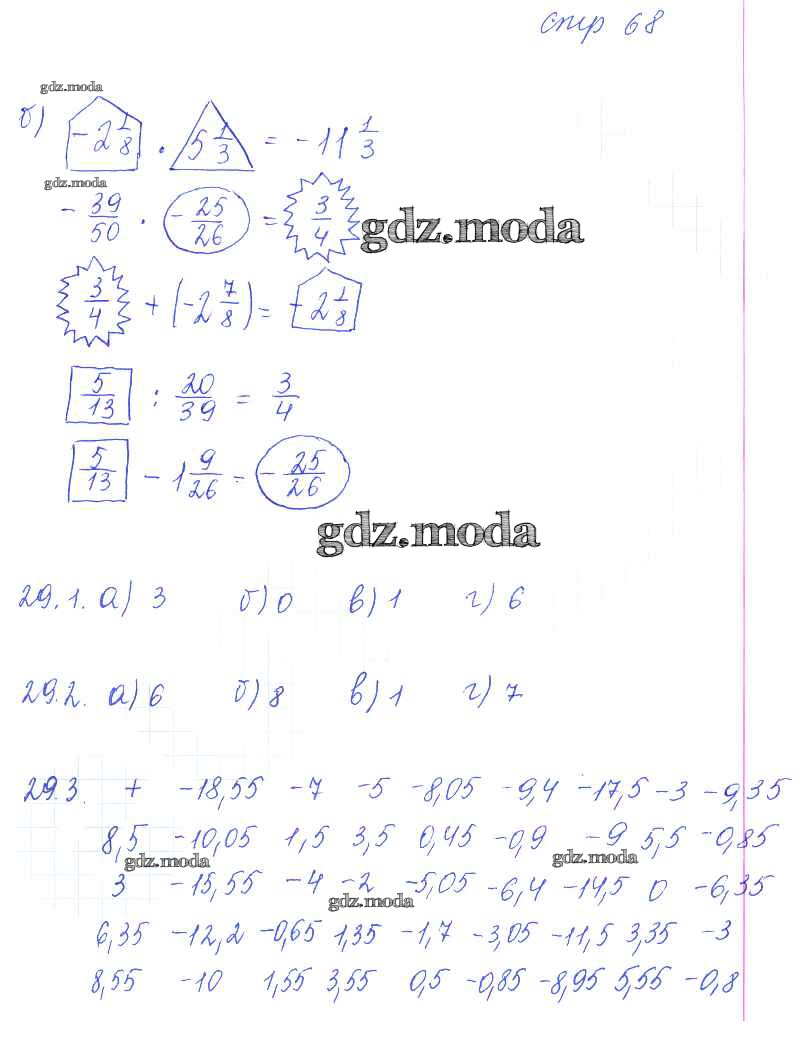 стр 68
gdz.moda
б) -2 1/8 · 5 1/3 = -11 1/3
gdz.moda
- 39/50 · - 25/26 = 3/4
gdz.moda
3/4 + (-2 7/8) = -2 1/8
5/13 : 20/39 = 3/4
5/13 - 1 9/26 = - 25/26
gdz.moda
29.1. а) 3 б) 0 в) 1 г) 6
29.2. а) 6 б) 8 в) 1 г) 7
29.3. + -18,55 -7 -5 -8,05 -9,4 -17,5 -3 -9,35
8,5 -10,05 1,5 3,5 0,45 -0,9 -9 5,5 -0,85
gdz.moda gdz.moda
3 -15,55 -4 -2 -5,05 -6,4 -14,5 0 -6,35
gdz.moda
6,35 -12,2 -0,65 1,35 -1,7 -3,05 -11,5 3,35 -3
8,55 -10 1,55 3,55 0,5 -0,85 -8,95 5,55 -0,8